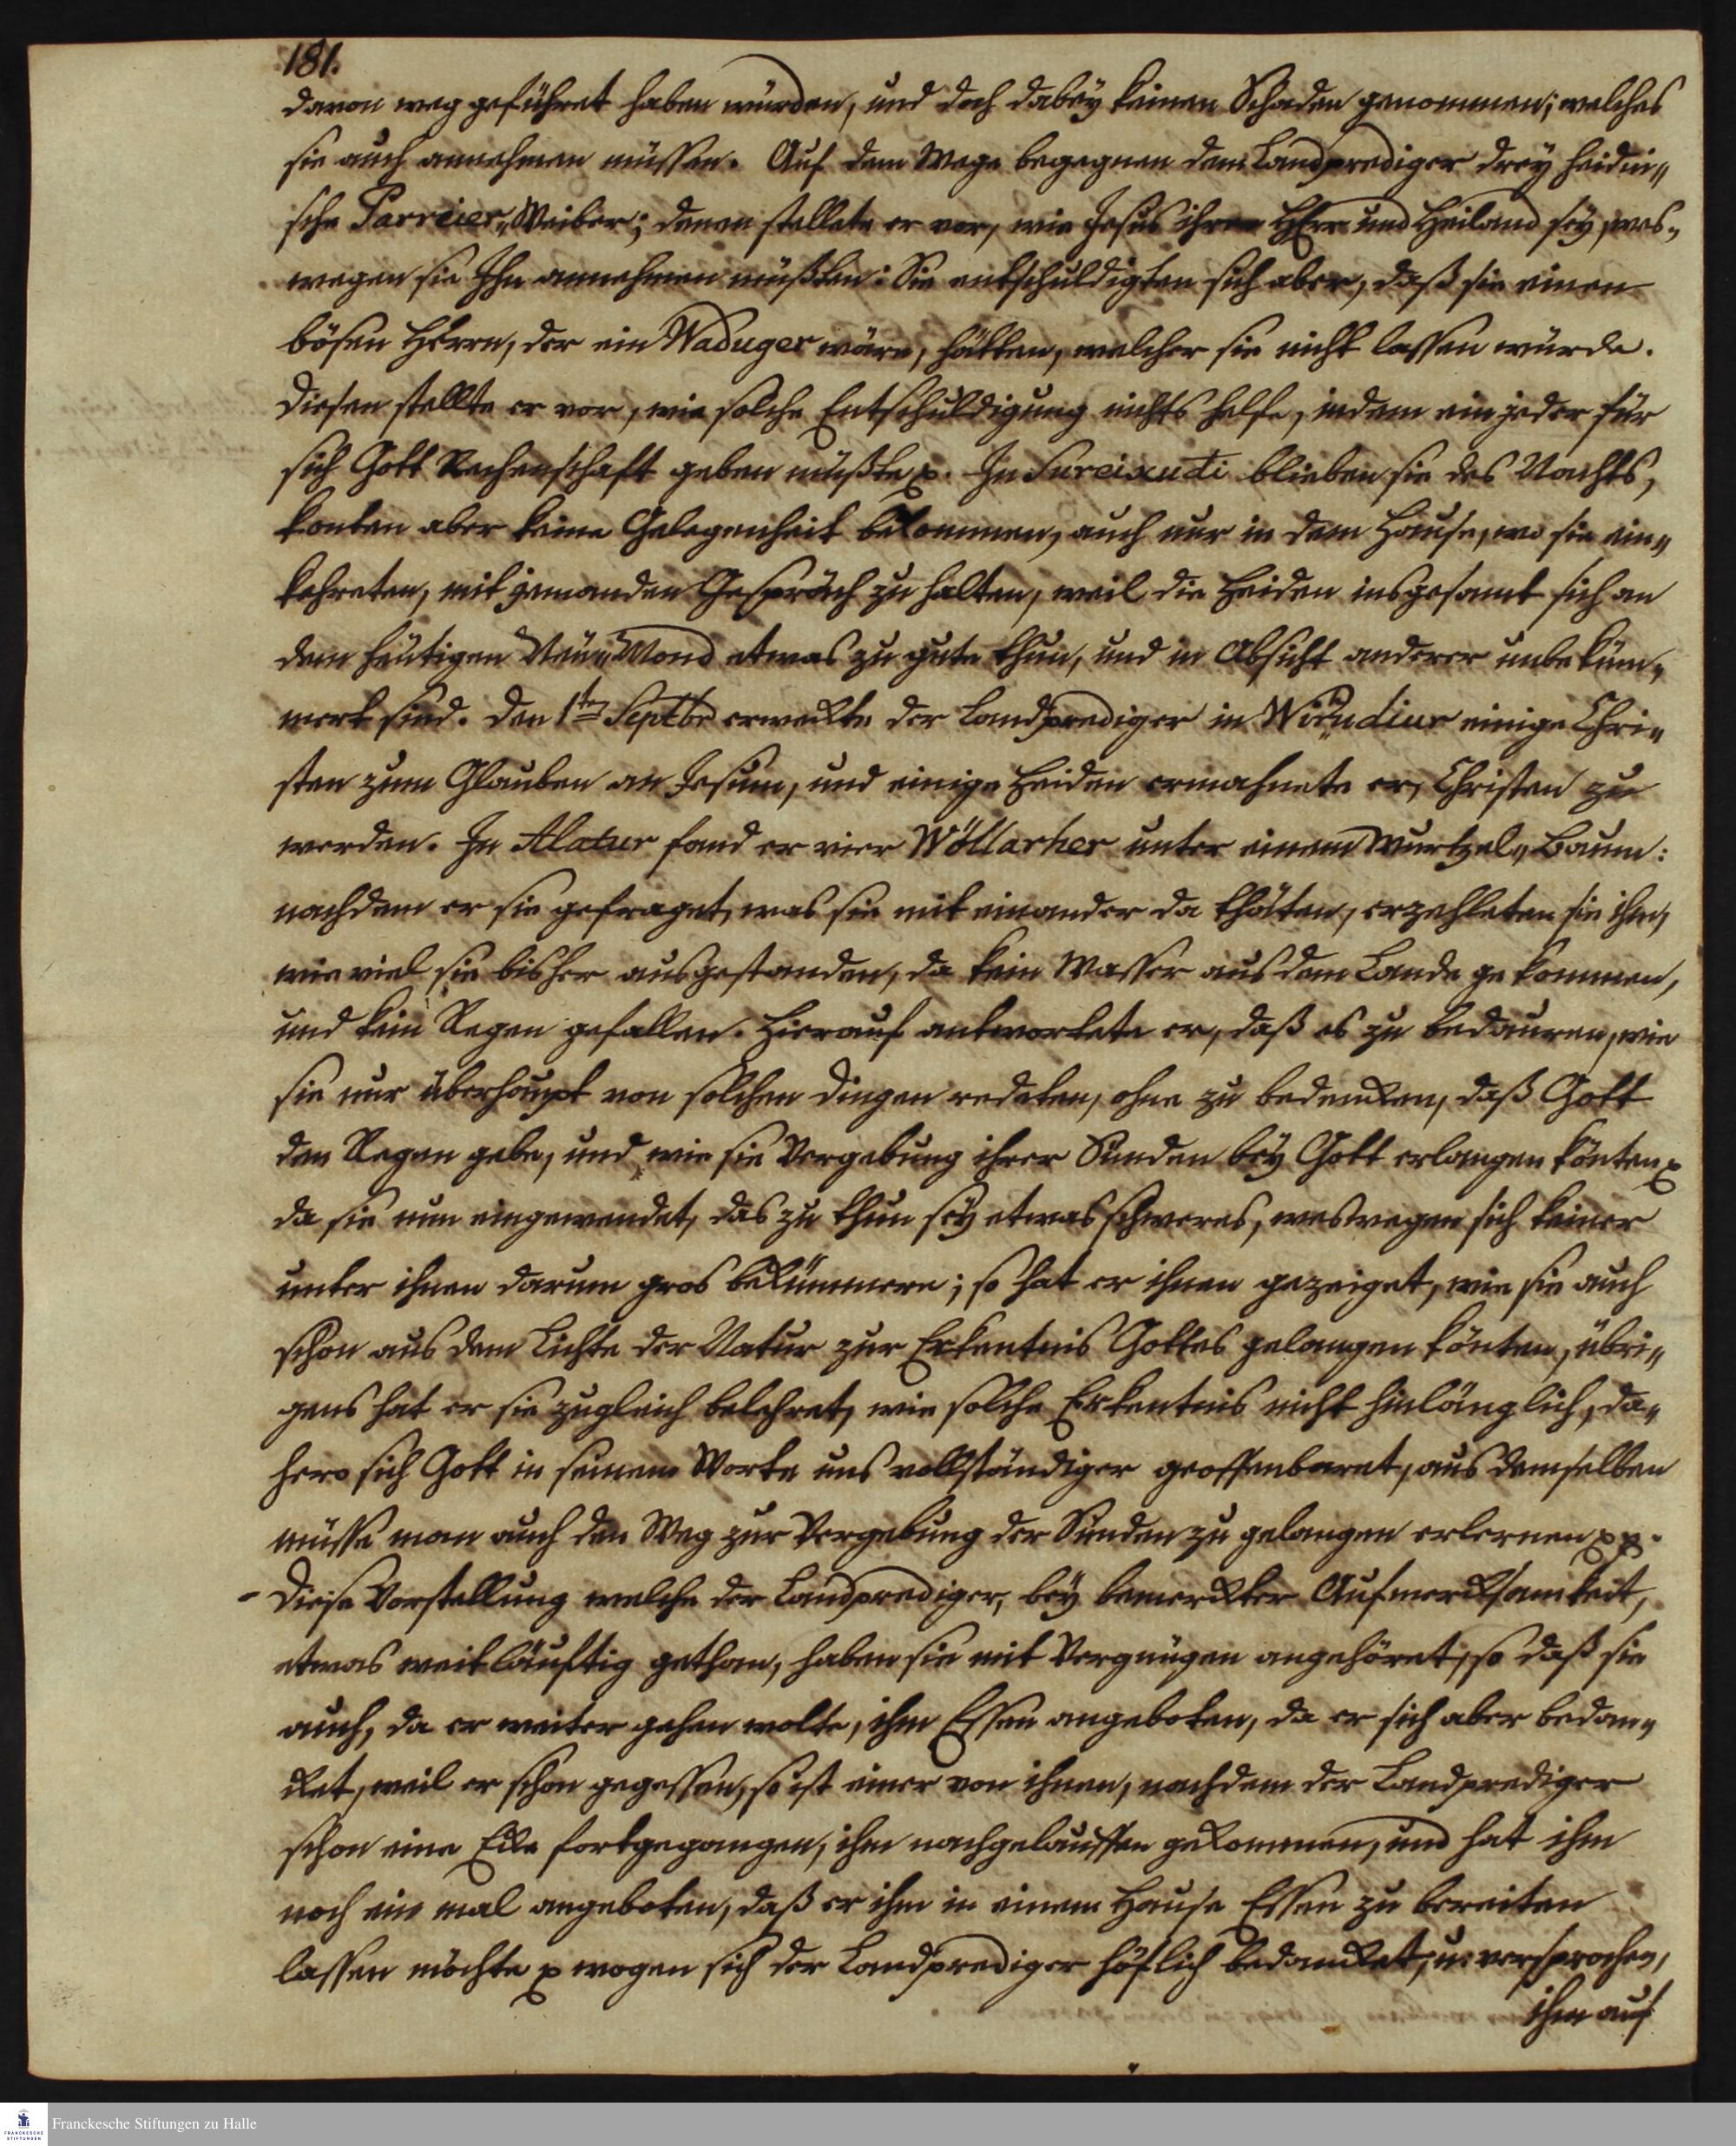 181.
davon weg geführet haben würden, und doch dabey keinen Schaden genommen; welches
sie auch annehmen müssen. Auf dem Wege begegnen dem Landprediger drey heidni„
sche Parreier„Weiber; denen stellete er vor, wie Jesus ihr HErr und Heiland sey, wes„
wegen sie Ihn annehmen müßten: Sie entschuldigten sich aber, daß sie einen
bösen Herrn, der ein Waduger wäre, hätten, welcher sie nicht lassen würde.
Diesen stellte er vor, wie solche Entschuldigung nichts helfe, indem ein jeder für
sich Gott Rechenschaft geben müßte p. In Sureixudi blieben sie des Nachts,
konten aber keine Gelegenheit bekommen, auch nur in dem Hause, wo sie ein„
kehreten, mit jemanden Gespräch zu halten, weil die Heiden insgesamt sich an
dem heutigen Neu„Mond etwas zu gute thun, und in Absicht anderer unbeküm„
mert sind. Den 1ten Septbr erweckte der Landprediger in Wirudiur einige Chri„
sten zum Glauben an Jesum, und einige Heiden ermahnete er, Christen zu
werden. In Alatur fand er vier Wöllarher unter einem Wurtzel„Baum:
nachdem er sie gefraget, was sie mit einander da thäten, erzehleten sie ihm,
wie viel sie bisher ausgestanden, da kein Wasser aus dem Lande gekommen,
und kein Regen gefallen. Hierauf antwortete er, daß es zu bedauren, wie
sie nur überhaupt von solchen Dingen redeten, ohne zu bedencken, daß Gott
den Regen gebe, und wie sie Vergebung ihrer Sünden bey Gott erlangen könten p
da sie nun eingewendet, das zu thun sey etwas schweres, weswegen sich keiner
unter ihnen darum gros bekümmere; so hat er ihnen gezeiget, wie sie auch
schon aus dem Lichte der Natur zur Erkentnis Gottes gelangen könten, übri„
gens hat er sie zugleich belehret, wie solche Erkentnis nicht hinlänglich, da„
hero sich Gott in seinem Worte uns vollständiger geoffenbaret, aus demselben
müsse man auch den Weg zur Vergebung der Sünden zu gelangen erlernen pp.
- Diese Vorstellung welche der Landprediger, bey bemerckter Aufmercksamkeit,
etwas weitläuftig gethan, haben sie mit Vergnügen angehöret, so daß sie
auch, da er weiter gehen wolte, ihm Essen angeboten, da er sich aber bedan„
cket, weil er schon gegessen, so ist einer von ihnen, nachdem der Landprediger
schon eine Ecke fortgegangen, ihm nachgelauffen gekommen, und hat ihm
noch ein mal angeboten, daß er ihm in einem Hause Essen zu bereiten
lassen möchte p wogen sich der Landprediger höflich bedancket, u. versprochen,
ihm auf
Franckesche Stiftungen zu Halle